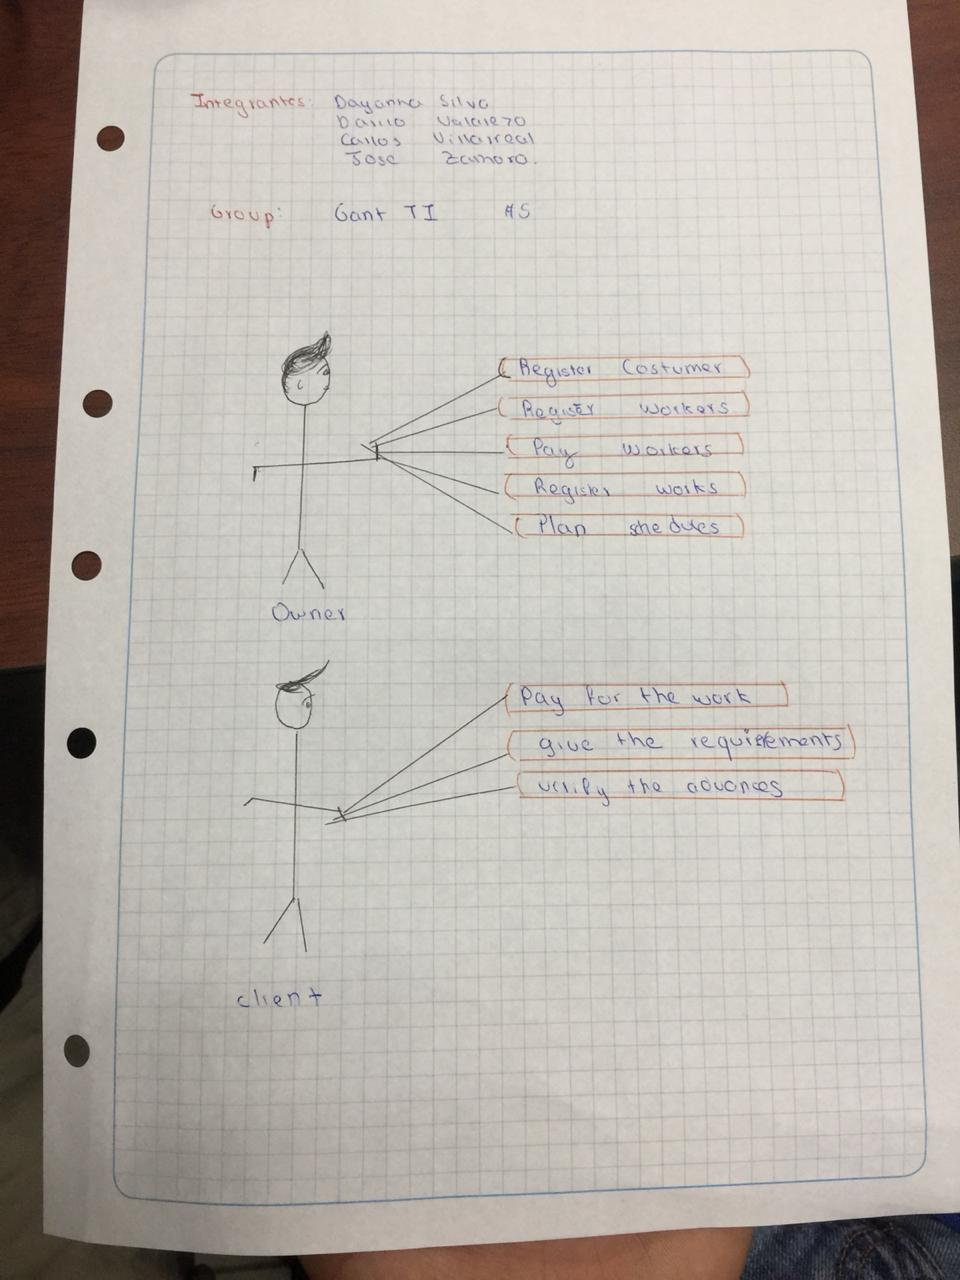 Integrantes: Dayanna Silva
Danilo Valarezo
Carlos Villarreal
Jose Zamora.
Group: Gant TI #5
Register Costumer
Register workers
Pay workers
Register works
Plan shedules
Owner
Pay for the work
give the requirements
verify the advances
client